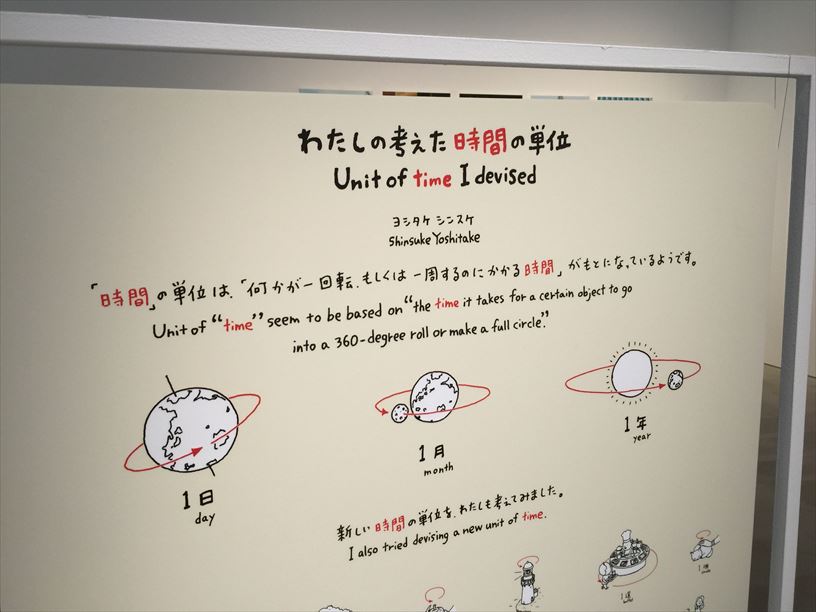 わたしの考えた時間の単位
Unit of time I devised
ヨシタケ シンスケ
Shinsuke Yoshitake
「時間」の単位は、「何かが一回転、もしくは一周するのにかかる時間」がもとになっているようです。
Unit of “time” seem to be based on “the time it takes for a certain object to go
into a 360-degree roll or make a full circle.”
1日
day
1月
month
1年
year
新しい時間の単位を、わたしも考えてみました。
I also tried devising a new unit of time.